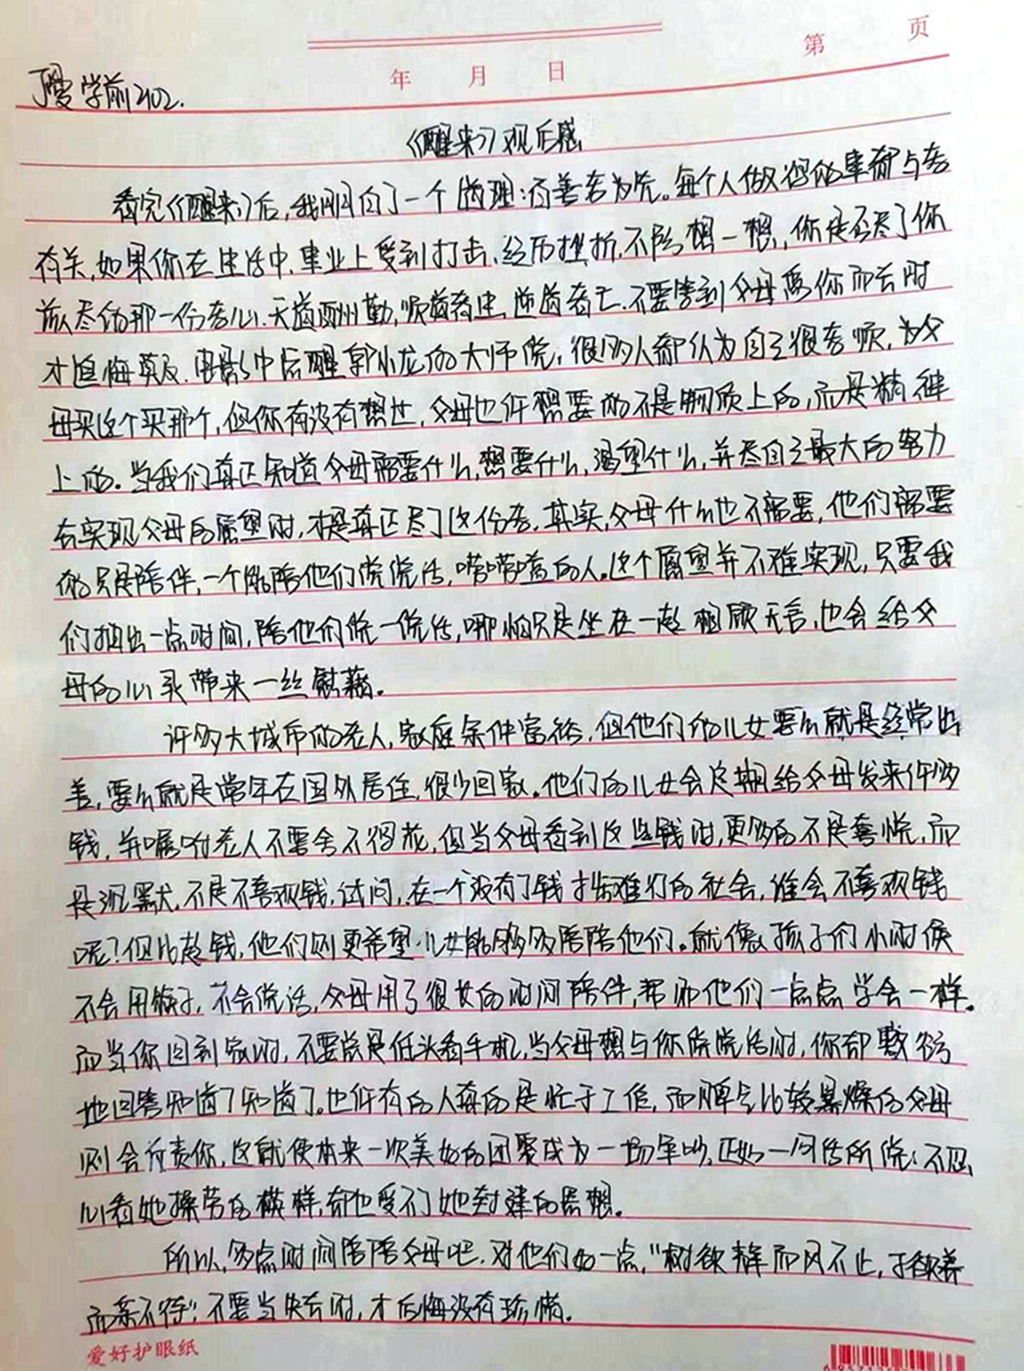 第 页
年 月 日
学前2102.
《醒来》观后感
看完《醒来》后,我明白了一个道理:百善孝为先。每个人做得的事都与孝
有关,如果你在生活中,事业上受到打击、经历挫折,不防想一想,你是否尽了你
该尽的那一份孝心,天道酬勤,顺道者生,逆道者亡,不要等到父母离你而去时
才追悔莫及。电影中后醒,郭小龙的大师说:很多人都认为自己很孝顺,为父
母买这个买那个,但你有没有想过,父母也许想要的不是物质上的,而是精神
上的。当我们真正知道父母需要什么,想要什么,渴望什么,并尽自己最大的努力
去实现父母的愿望时,才是真正尽了这份孝。其实,父母什么也不需要,他们需要
的只是陪伴,一个能陪他们说说话,唠唠嗑的人。这个愿望并不难实现,只要我
们抽出一点时间,陪他们说一说话,哪怕只是坐在一起相顾无言,也会给父
母的心灵带来一丝慰藉。
许多大城市的老人,家庭条件富裕,但他们的儿女要么就是经常出
差,要么就是常年在国外居住,很少回家。他们的儿女会定期给父母发来许多
钱,并嘱咐老人不要舍不得花,但当父母看到这些钱时,更多的不是喜悦,而
是沉默,不是不喜欢钱,试问,在一个没有了钱寸步难行的社会,谁会不喜欢钱
呢?但比起钱,他们则更希望儿女能够多陪陪他们。就像孩子们小时候
不会用筷子,不会说话,父母用了很长的时间陪伴,帮助他们一点点学会一样。
而当你回到家时,不要总是低头看手机,当父母想与你说说话时,你却敷衍
地回答知道了知道了。也许有的人真的是忙于工作,而脾气比较暴燥的父母
则会斥责你,这就使本来一次美好的团聚成为一场争吵,正如一句话所说:不忍
心看她操劳的模样,却也受不了她封建的思想。
所以,多点时间陪陪父母吧,对他们好一点,"树欲静而风不止,子欲养
而亲不待",不要当失去时,才后悔没有珍惜。
爱好护眼纸